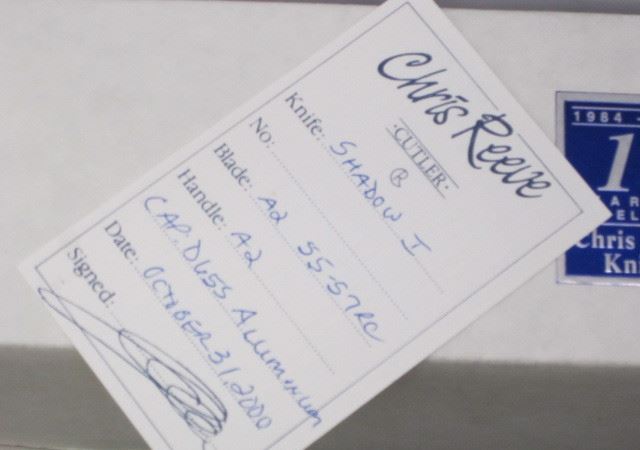 Chris Reeve
·CUTLER·
®
Knife: SHADOW I
No:
Blade: A2 55-57RC
Handle: A2
CAP. D655 ALUMINIUM
Date: OCTOBER 31, 2000
Signed:
1984 -
1
AR
EL
Chris
Kni